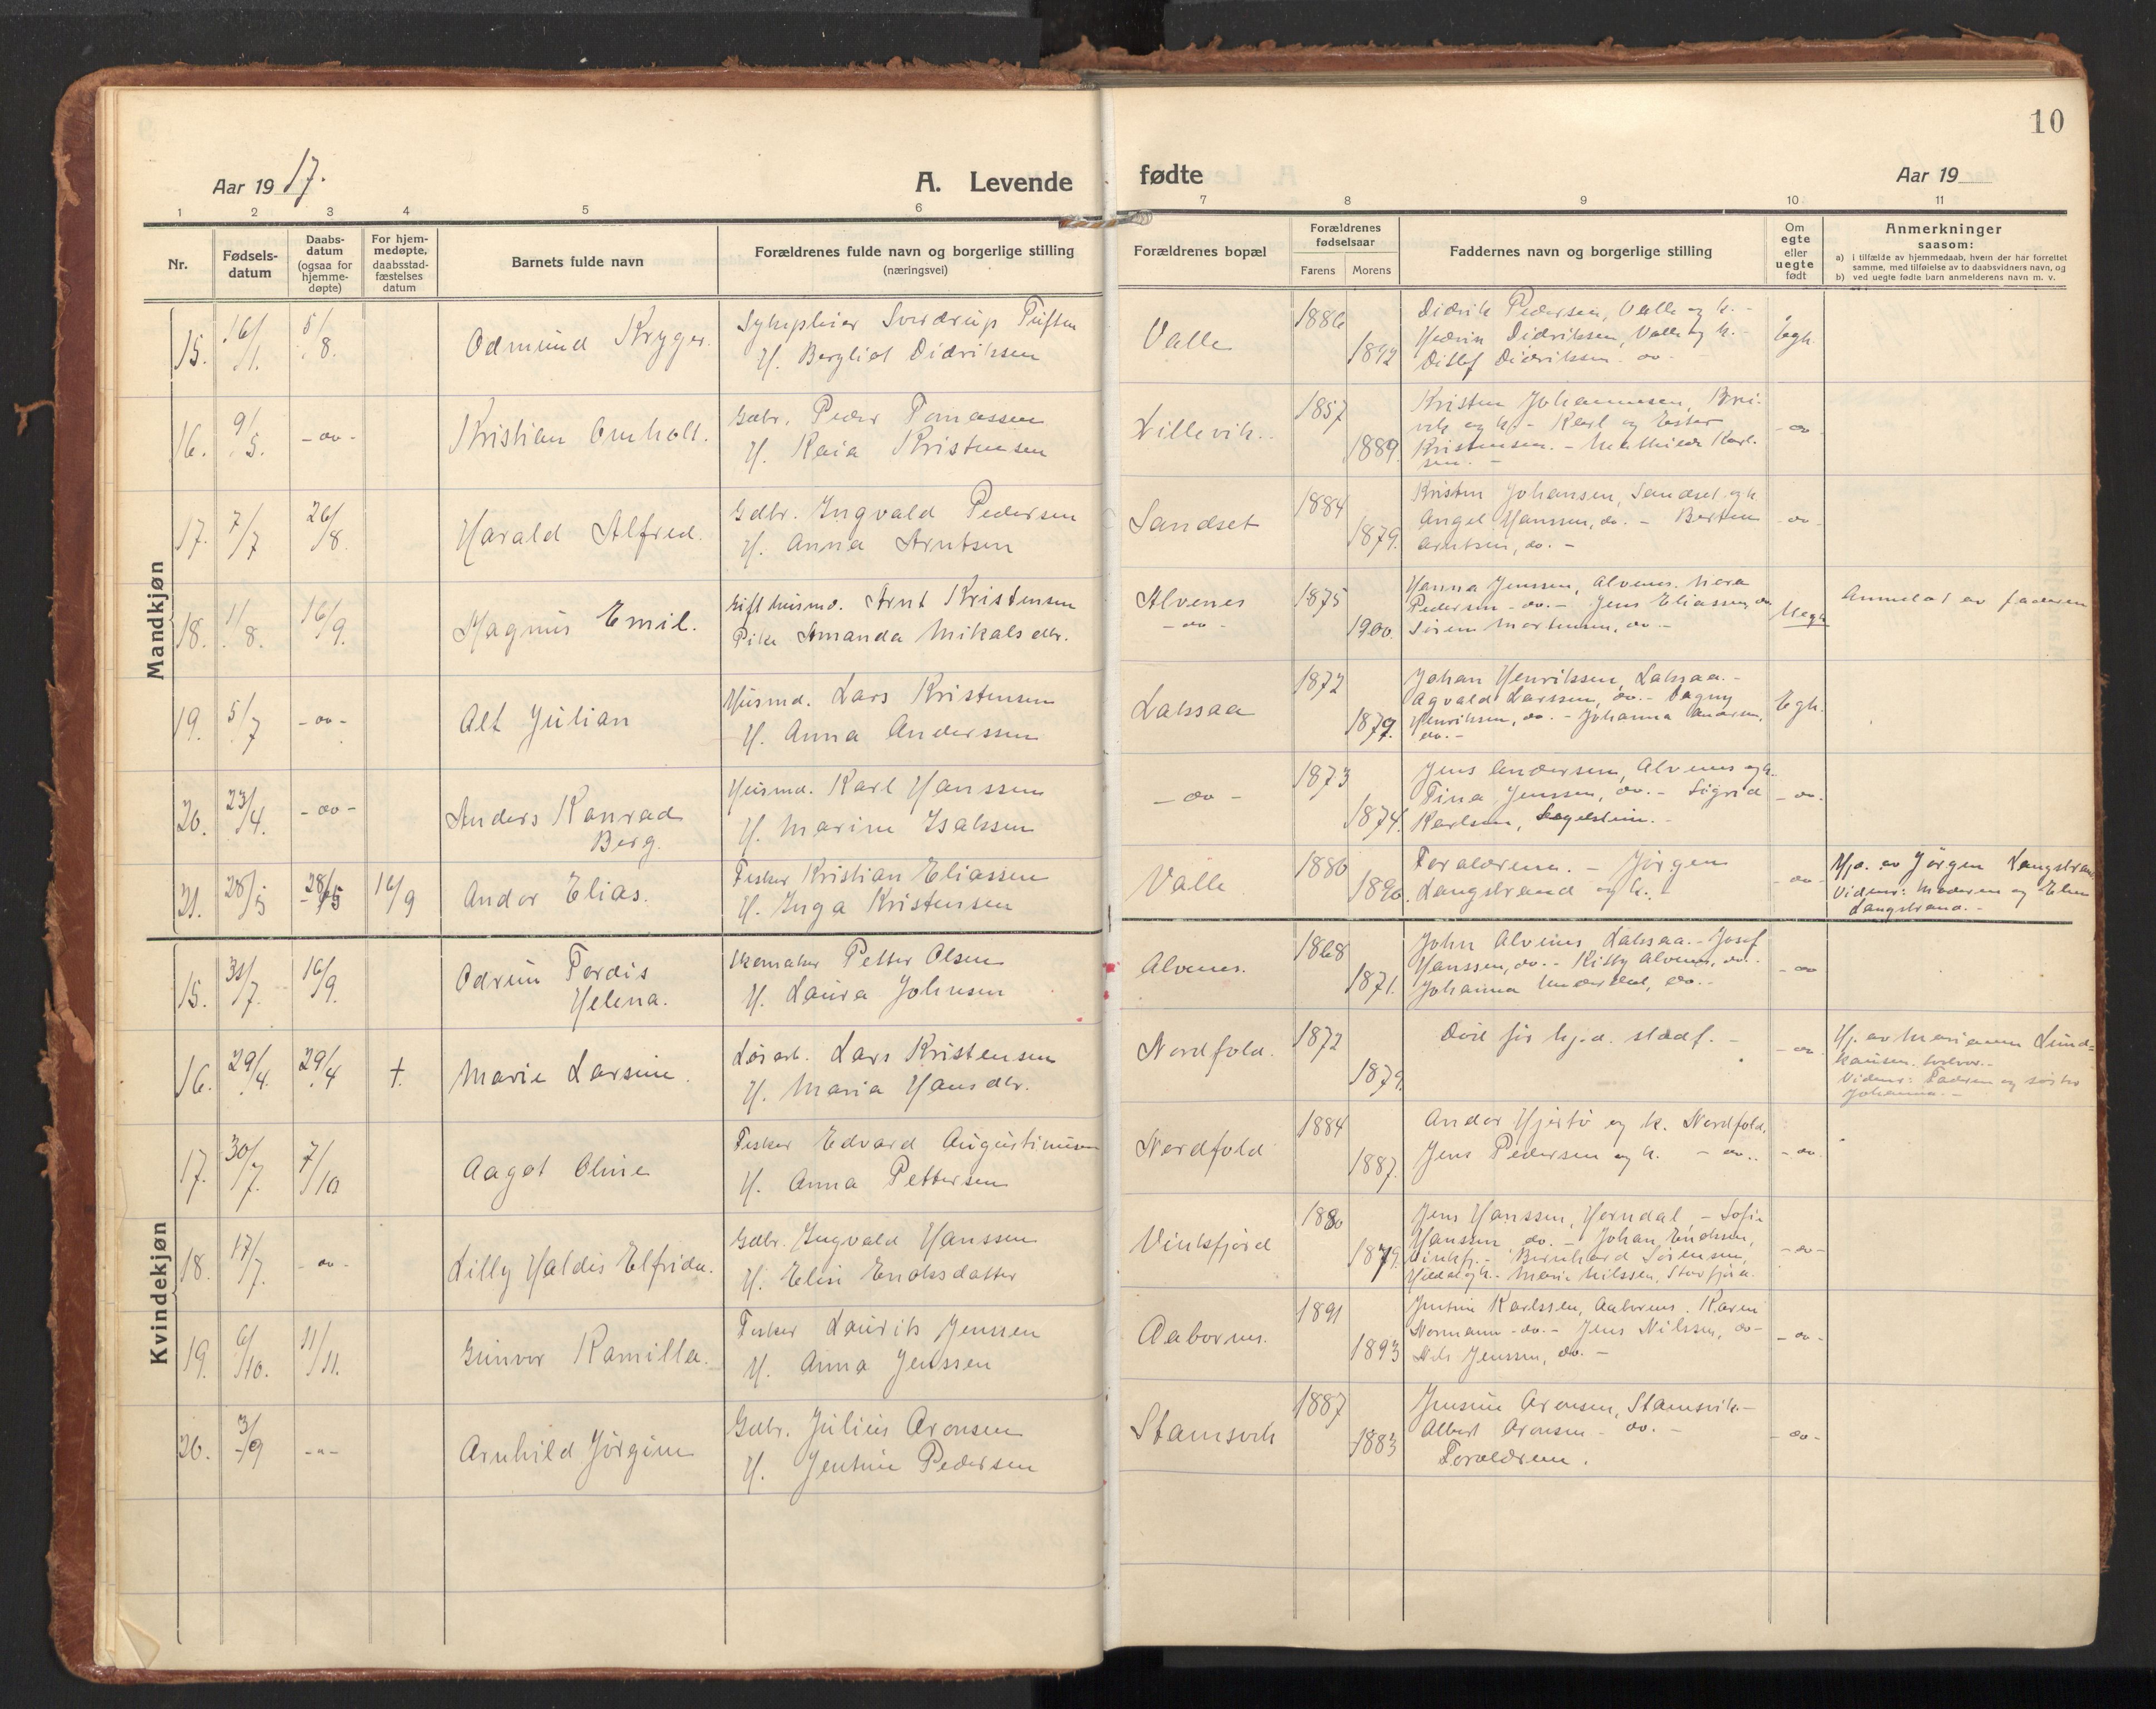 10
Aar 1917.
A. Levende fødte
Aar 19
1 2 3 4 5 6 7 8 9 10 11
Nr.
Fødsels-
datum
Daabs-
datum
(ogsaa for
hjemme-
døpte)
For hjem-
medøpte,
daabsstad-
fæstelses
datum
Barnets fulde navn
Forældrenes fulde navn og borgerlige stilling
(næringsvei)
Forældrenes bopæl
Forældrenes
fødselsaar
Farens Morens
Faddernes navn og borgerlige stilling
Om
egte
eller
uegte
født
Anmerkninger
saasom:
a) i tilfælde av hjemmedaab, hvem der har forrettet
samme, med tilføielse av to daabsvidners navn, og
b) ved uegte fødte barn anmelderens navn m. v.
Mandkjøn
15. 16/1. 5/8. Odmund Kryger.
Sverdrup
H. Bergliot Didriksen
Valle 1886 1892
Didrik Pedersen, Valle og k. -
Hedvin Didriksen, Valle og k. -
Ditlef Didriksen. do.
Egt.
16. 9/5. -do- Kristian Omholt.
Gdbr. Peder Tomassen
H. Kaia Kristensen
Lillevik. 1857 1889.
Kristen Johannesen, Bre-
vik og k. - Karl og Ester
Kristensen. - Mathilde Karl-
sen. -
-do-
17. 7/7 26/8. Harald Alfred.
Gdbr. Ingvald Pedersen
H. Anna Arntsen
Sandset 1884 1879.
Kristen Johansen, Sandset og k
Angel Hanssen, do. - Berten
Arntsen, do. -
-do-
18. 11/8. 16/9. Magnus Emil.
Gift husmd. Arnt Kristensen
Pike Amanda Mikalsdtr.
Alvenes
-do-
1875 1900.
Hanna Jenssen, Alvenes. Nora
Pedersen - do. - Jens Eliassen, do
Sørine Mortensen, do. -
Uegt
Anmeldt av faderen
19. 5/7 -do- Alf Julian
Husmd. Lars Kristensen
H. Anna Anderssen
Lakssaa 1872 1879.
Johan Henriksen, Lakssaa. -
Agvald Larssen, do. - Dagny
Henriksen, do. - Johanna Andersen,
do. -
Egt.
20. 23/4. -do- Anders Konrad
Berg.
Husmd. Karl Hanssen
H. Marine Isaksen
-do- 1873 1874.
Jens Andersen, Alvenes og k.
Tina Jenssen, do. - Sigrid
Karlsen,
-do-
21. 28/5 28/5 16/9 Andor Elias.
Fisker Kristian Eliassen
H. Inga Kristensen
Valle 1886 1890.
Forældrene. - Jørgen
Langstrand og k. -
-do-
Hjd. av Jørgen Langstrand
Vidner: Moderen og Elen
Langstrand. -
Kvindekjøn
15. 31/7. 16/9. Odrun Tordis
Helena.
Skomaker Petter Olsen
H. Laura Johnsen
Alvenes. 1868 1871.
John Alvenes, Lakssaa. - Josef
Hanssen, do. - Kitty Alvenes, do. -
Johanna, do. -
-do-
16. 29/4. 29/4 †. Marie Larsine.
Løsarb. Lars Kristensen
H. Maria Hansdtr.
Nordfold. 1872 1879.
Død før hj.d. stadf. -
-do-
Hj. av Marianne Lund-
Vidner: Faderen og søster
Johanna. -
17. 30/7. 7/10 Aagot Oline
Fisker Edvard Augustinusen
H. Anna Pettersen
Nordfold 1884 1887.
Andor Hjertø og k. Nordfold,
Jens Pedersen og k. - do..
-do-
18. 17/7. -do- Lilly Haldis Elfrida.
Gdbr. Ingvald Hanssen
H. Elisi Enoksdatter
Vinkfjord 1880 1879.
Jens Hanssen, Horndal, - Sofie
Hanssen do. - Johan Enoksen,
Vinkfj. - Bernhard Sørensen,
Marie Nilssen, Storfjord.
-do-
19. 6/10. 11/11. Gunvor Kamilla.
Fisker Laurits Jenssen
H. Anna Jenssen
Aabornes. 1891 1893
Jentine Karlssen, Aabornes. Karen
Normann - do. - Jens Nilssen, do -
Nils Jenssen, do. -
-do-
20. 3/9 -"- Arnhild Jørgine
Gdbr. Julius Aronsen
H. Jentine Pedersen
Stamsvik 1887 1883
Jensine Aronsen, Stamsvik -
Albert Aronsen - do. -
Forældrene.
-do-